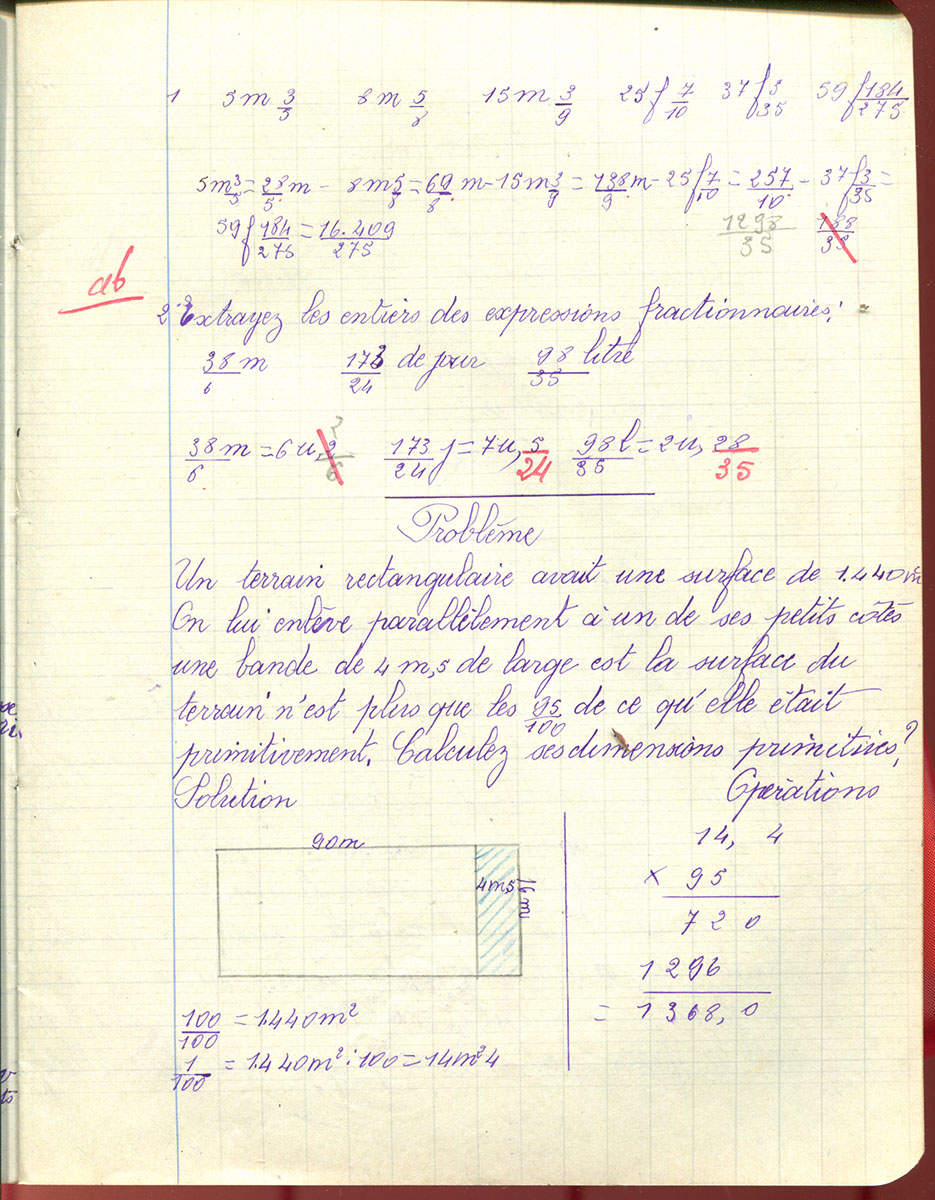 1 5m 3/5 8m 5/8 15m 3/9 25f 7/10 37f 3/35 59f 184/275
5m 3/5 = 28/5 m - 8m 5/8 = 69/8 m - 15m 3/9 = 138/9 m - 25f 7/10 = 257/10 - 37f 3/35 =
59f 184/275 = 16.409/275 1298/35 188/35
ab
2° Extrayez les entiers des expressions fractionnaires:
38/6 m 173/24 de jour 98/35 litre
38/6 m = 6u, 2/6 173/24 j = 7u, 5/24 98l/35 = 2u, 28/35
Problème
Un terrain rectangulaire avait une surface de 1.440m²
On lui enlève parallèlement à un de ses petits côtés
une bande de 4m,5 de large est la surface du
terrain n'est plus que les 95/100 de ce qu'elle était
primitivement. Calculez ses dimensions primitives?
Solution Opérations
90m
4m,5
16m
14,4
× 95
720
1296
= 1368,0
100/100 = 1.440m²
1/100 = 1.440m² : 100 = 14m²4